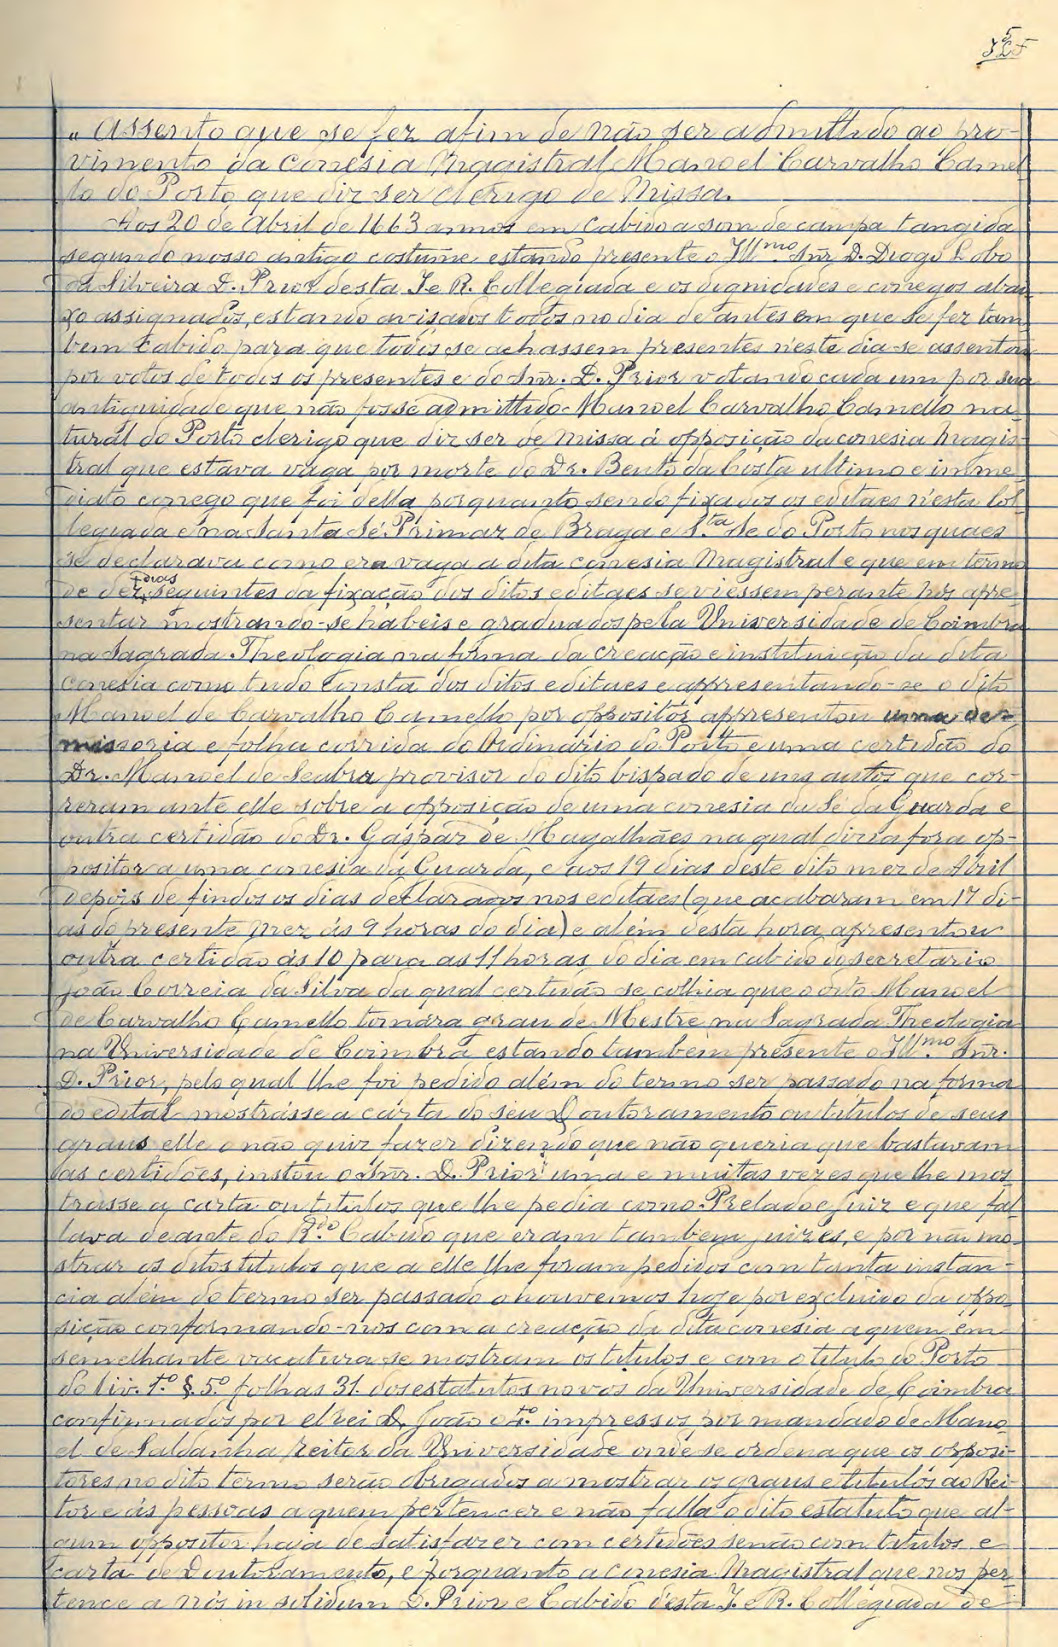 „ Assento que se fez afim de não ser admittido ao pro-
vimento da conesia Magistral Manoel Carvalho Camel-
lo do Porto que diz ser clerigo de Missa.
Aos 20 de Abril de 1663 annos em Cabido a som de campa tangida
segundo nosso antigo costume estando presente o Illmo. Snr. D. Diogo Lobo
da Silveira D. Prior desta I. e R. Collegiada e os dignidades e conegos abai-
xo assignados, estando avisados todos no dia de antes em que se fez tam-
bem Cabido para que todos se achassem presentes n'este dia se assentou
por votos de todos os presentes e do Snr. D. Prior votando cada um por sua
antiguidade que não fosse admittido Manoel Carvalho Camello na-
tural do Porto clerigo que diz ser de Missa á opposição da conesia Magis-
tral que estava vaga por morte do Dr. Bento da Costa ultimo e imme-
diato conego que foi della porquanto sendo fixados os editaes n'esta Col-
legiada e na Santa Sé Primaz de Braga e S.ta Sé do Porto nos quaes
se declarava como era vaga a dita conesia Magistral e que em termo
de dez dias seguintes da fixação dos ditos editaes se viessem perante nós apre-
sentar mostrando-se habeis e graduados pela Universidade de Coimbra
na Sagrada Theologia na fórma da creação e instituição da dita
conesia como tudo consta dos ditos editaes e appresentando-se o dito
Manoel de Carvalho Camello por oppositor appresentou uma de-
missoria e folha corrida do Ordinario do Porto e uma certidão do
Dr. Manoel de Seabra provisor do dito bispado de uns autos que cor-
reram ante elle sobre a opposição de uma conesia da Sé da Guarda e
outra certidão do Dr. Gaspar de Magalhães na qual dizia fora op-
positor a uma conesia da Guarda, e aos 19 dias deste dito mez de Abril
depois de findos os dias declarados nos editaes (que acabaram em 17 di-
as do presente mez ás 9 horas do dia) e além desta hora apresentou
outra certidão ás 10 para as 11 horas do dia em cabido do secretario
João Correia da Silva da qual certidão se colhia que o dito Manoel
de Carvalho Camello tomára grau de Mestre na Sagrada Theologia
na Universidade de Coimbra estando tambem presente o Illmo. Snr.
D. Prior, pelo qual lhe foi pedido além do termo ser passado na forma
do edital mostrásse a carta do seu Doutoramento ou titulos de seus
graus elle o não quiz fazer dizendo que não queria que bastavam
as certidões, instou o Snr. D. Prior uma e muitas vezes que lhe mos-
trasse a carta ou titulos que lhe pedia como Prelado e Juiz e que fal-
lava deante do R.do Cabido que eram tambem juizes, e por não mo-
strar os ditos titulos que a elle lhe foram pedidos com tanta instan-
cia além do termo ser passado o houvemos hoje por excluido da oppo-
sição conformando-nos com a creação da dita conesia a quem em
semelhante vacatura se mostram os titulos e com o titulo do Porto
do liv. 1.º §. 5.º folhas 31. dos estatutos novos da Universidade de Coimbra
confirmados por el rei D. João o 4.º impressos por mandado de Mano-
el de Saldanha reitor da Universidade onde se ordena que os opposi-
tores no dito termo serão obrigados a mostrar os graus e titulos ao Rei-
tor e ás pessoas a quem pertencer e não falla o dito estatuto que al-
gum oppositor haja de satisfazer com certidões senão com titulos e
carta de Doutoramento, e porquanto a conesia Magistral que nos per-
tence a nós in solidum D. Prior e Cabido desta I. e R. Collegiada de